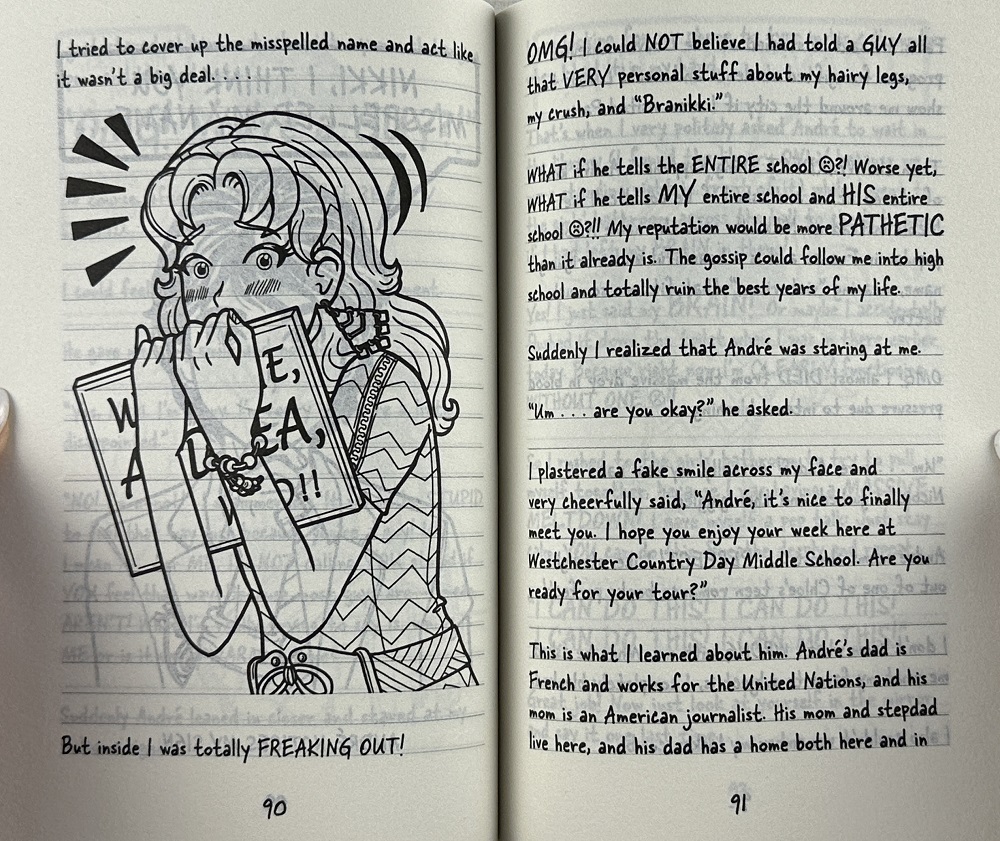 I tried to cover up the misspelled name and act like
it wasn't a big deal. . . .
W
A
E,
EA,
D!!
But inside I was totally FREAKING OUT!
90
OMG! I could NOT believe I had told a GUY all
that VERY personal stuff about my hairy legs,
my crush, and “Branikki.”
WHAT if he tells the ENTIRE school ☹?! Worse yet,
WHAT if he tells MY entire school and HIS entire
school ☹?!! My reputation would be more PATHETIC
than it already is. The gossip could follow me into high
school and totally ruin the best years of my life.
Suddenly I realized that André was staring at me.
“Um . . . are you okay?” he asked.
I plastered a fake smile across my face and
very cheerfully said, “André, it's nice to finally
meet you. I hope you enjoy your week here at
Westchester Country Day Middle School. Are you
ready for your tour?”
This is what I learned about him. André's dad is
French and works for the United Nations, and his
mom is an American journalist. His mom and stepdad
live here, and his dad has a home both here and in
91